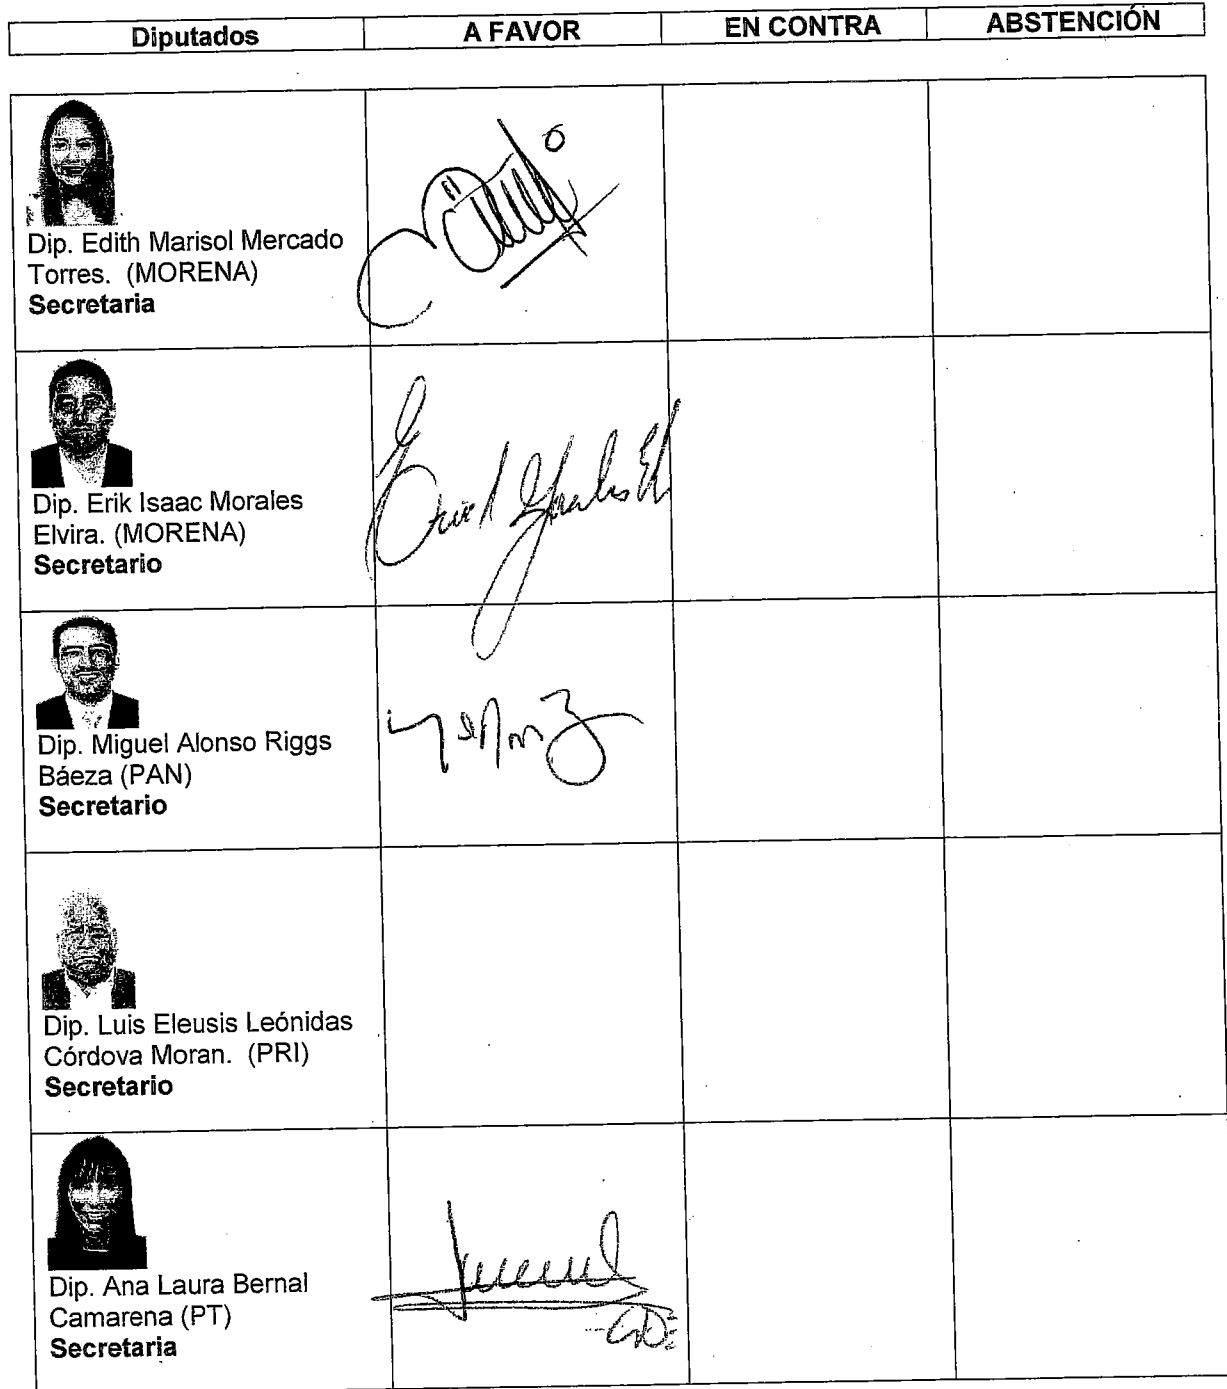 Diputados A FAVOR EN CONTRA ABSTENCIÓN
Dip. Edith Marisol Mercado
Torres. (MORENA)
Secretaria
Dip. Erik Isaac Morales
Elvira. (MORENA)
Secretario
Dip. Miguel Alonso Riggs
Báeza (PAN)
Secretario
Dip. Luis Eleusis Leónidas
Córdova Moran. (PRI)
Secretario
Dip. Ana Laura Bernal
Camarena (PT)
Secretaria